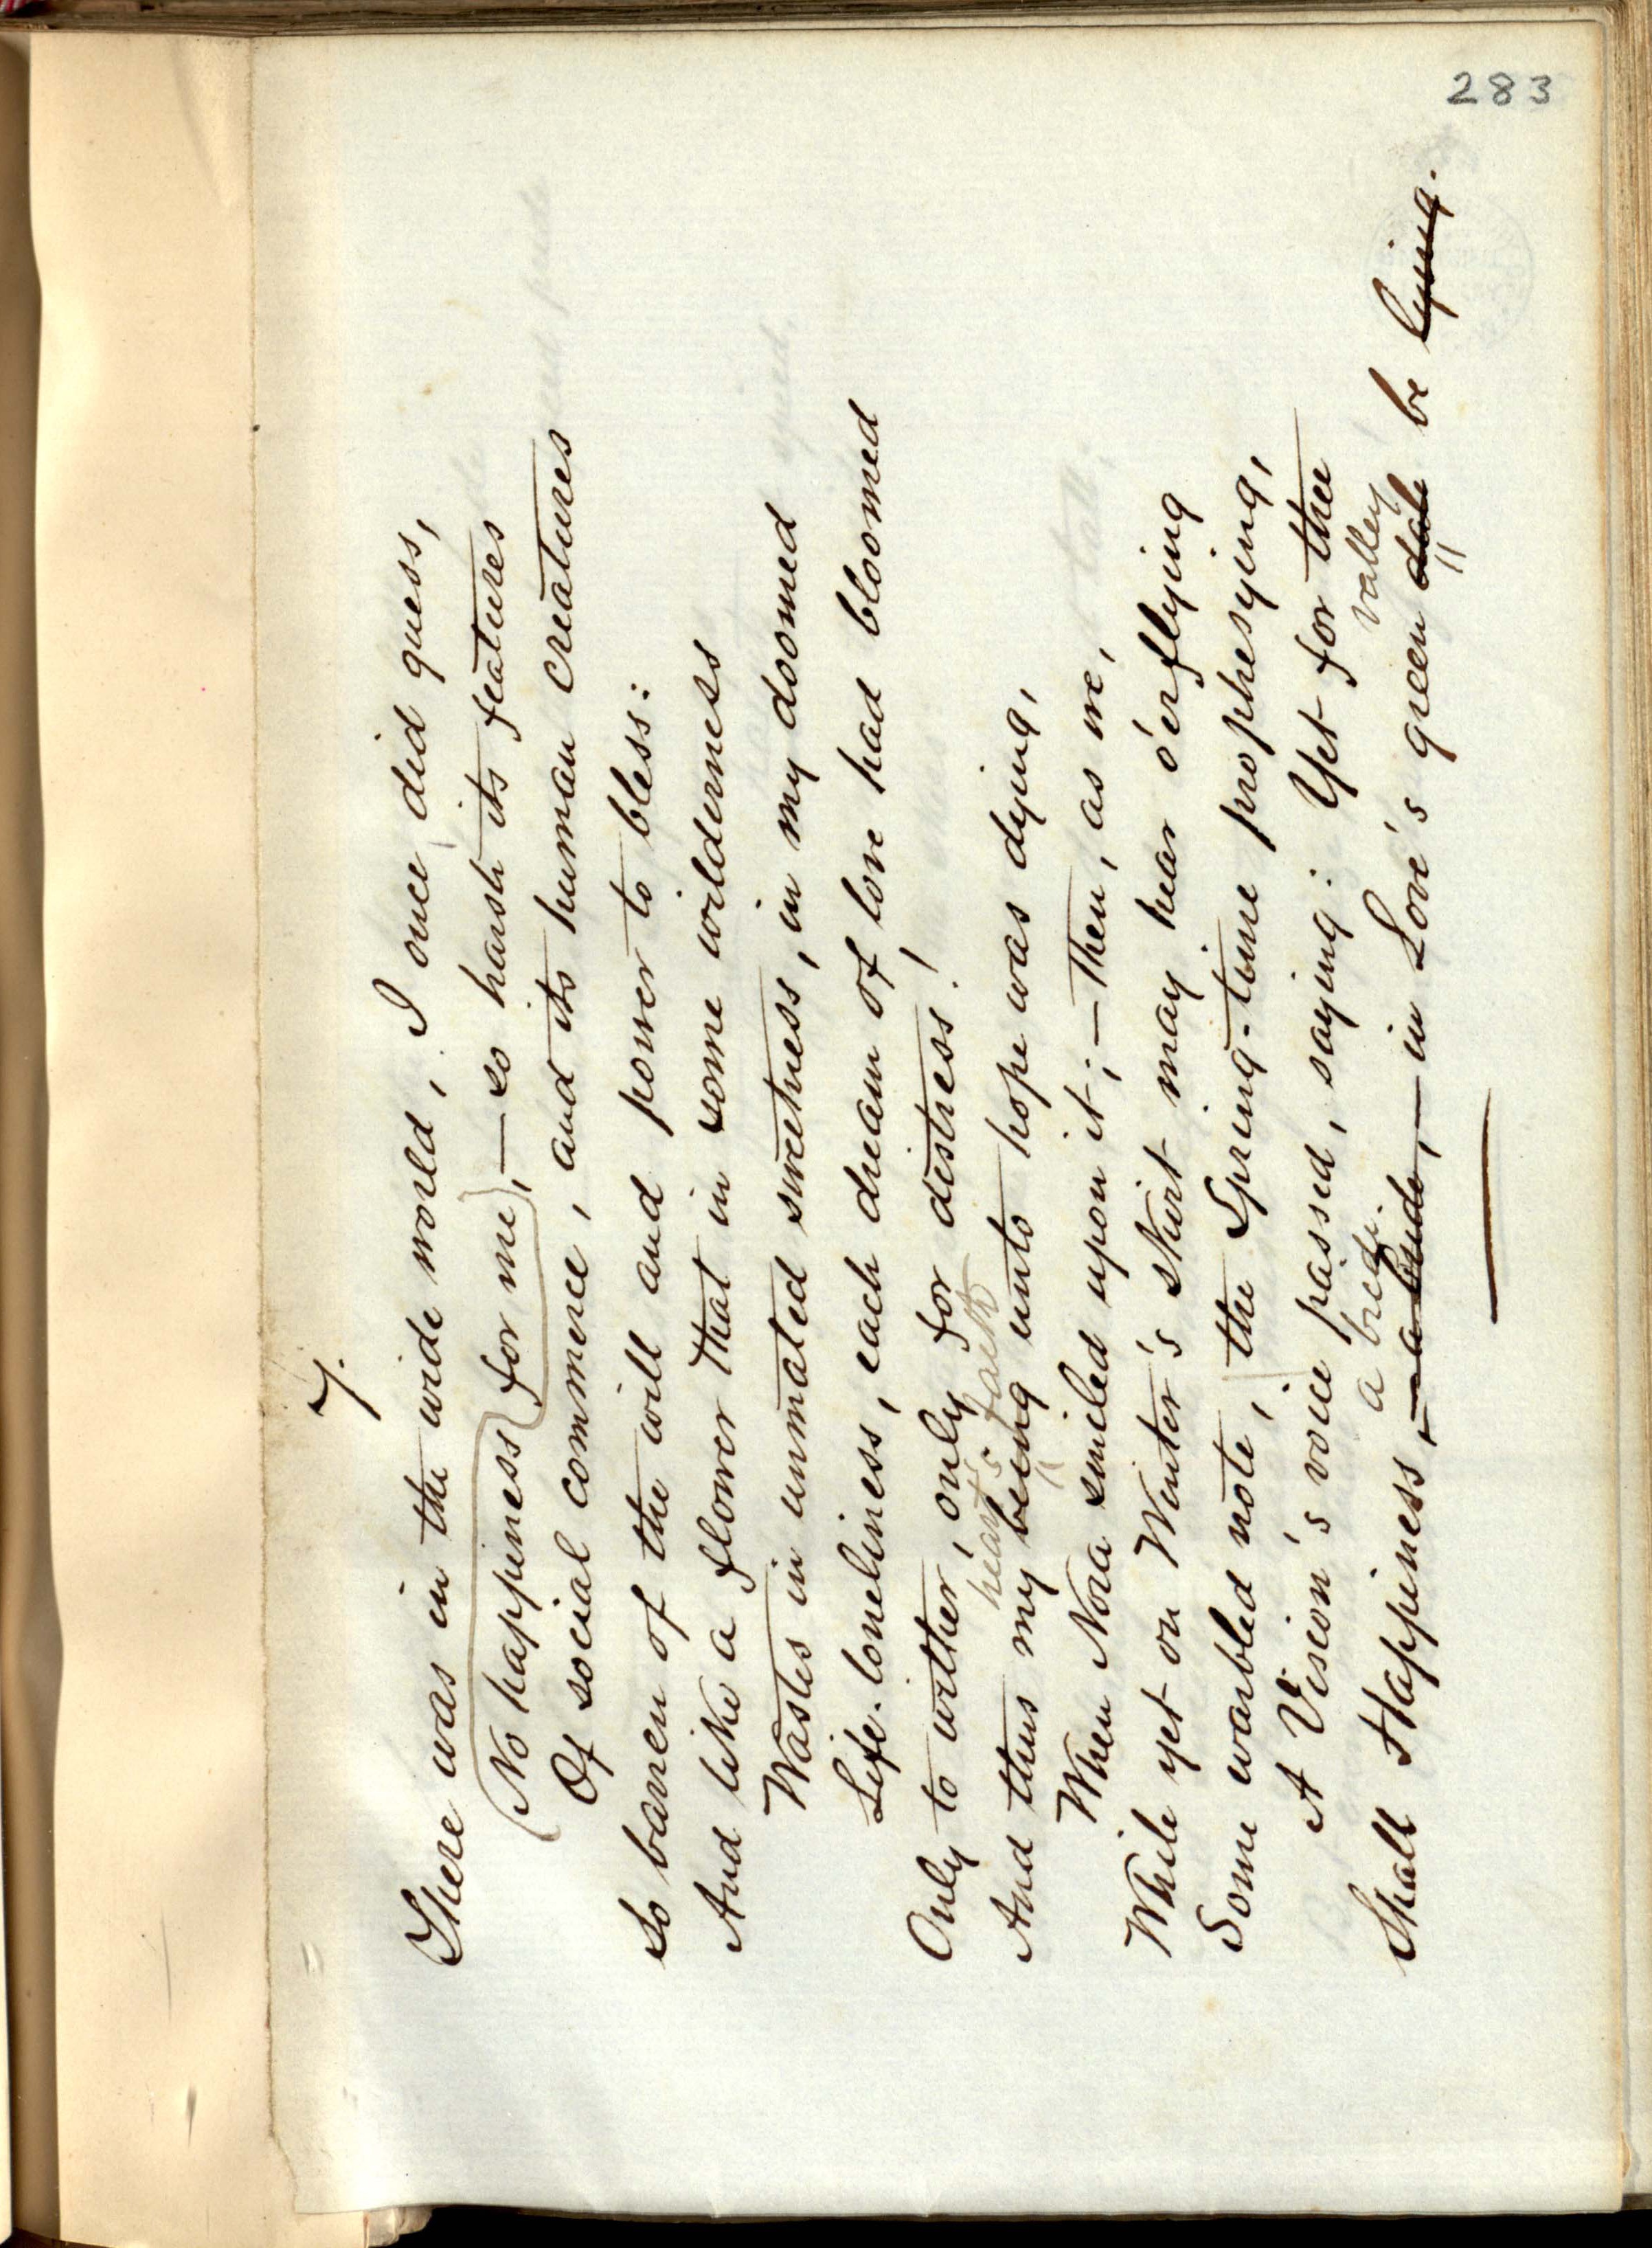 283
7.
There was in the wide world, I once did guess,
No happiness for me, — so harsh its features
Of social commerce, and its human creatures
So barren of the will and power to bless:
And like a flower that in some wilderness
Wastes in unmated sweetness, in my doomed
Life-loneliness, each dream of love had bloomed
Only to wither, only for distress!
heart's faith
And thus my being unto hope was dying,
When Nora smiled upon it; — Then, as we,
While yet on Winter's skirt may hear o'erflying
Some warbled note, the Spring-time prophesying,
A Vision's voice passed, saying: Yet for thee
a bride. valley
Shall Happiness, — a bride, — in Love's green dale be lying.